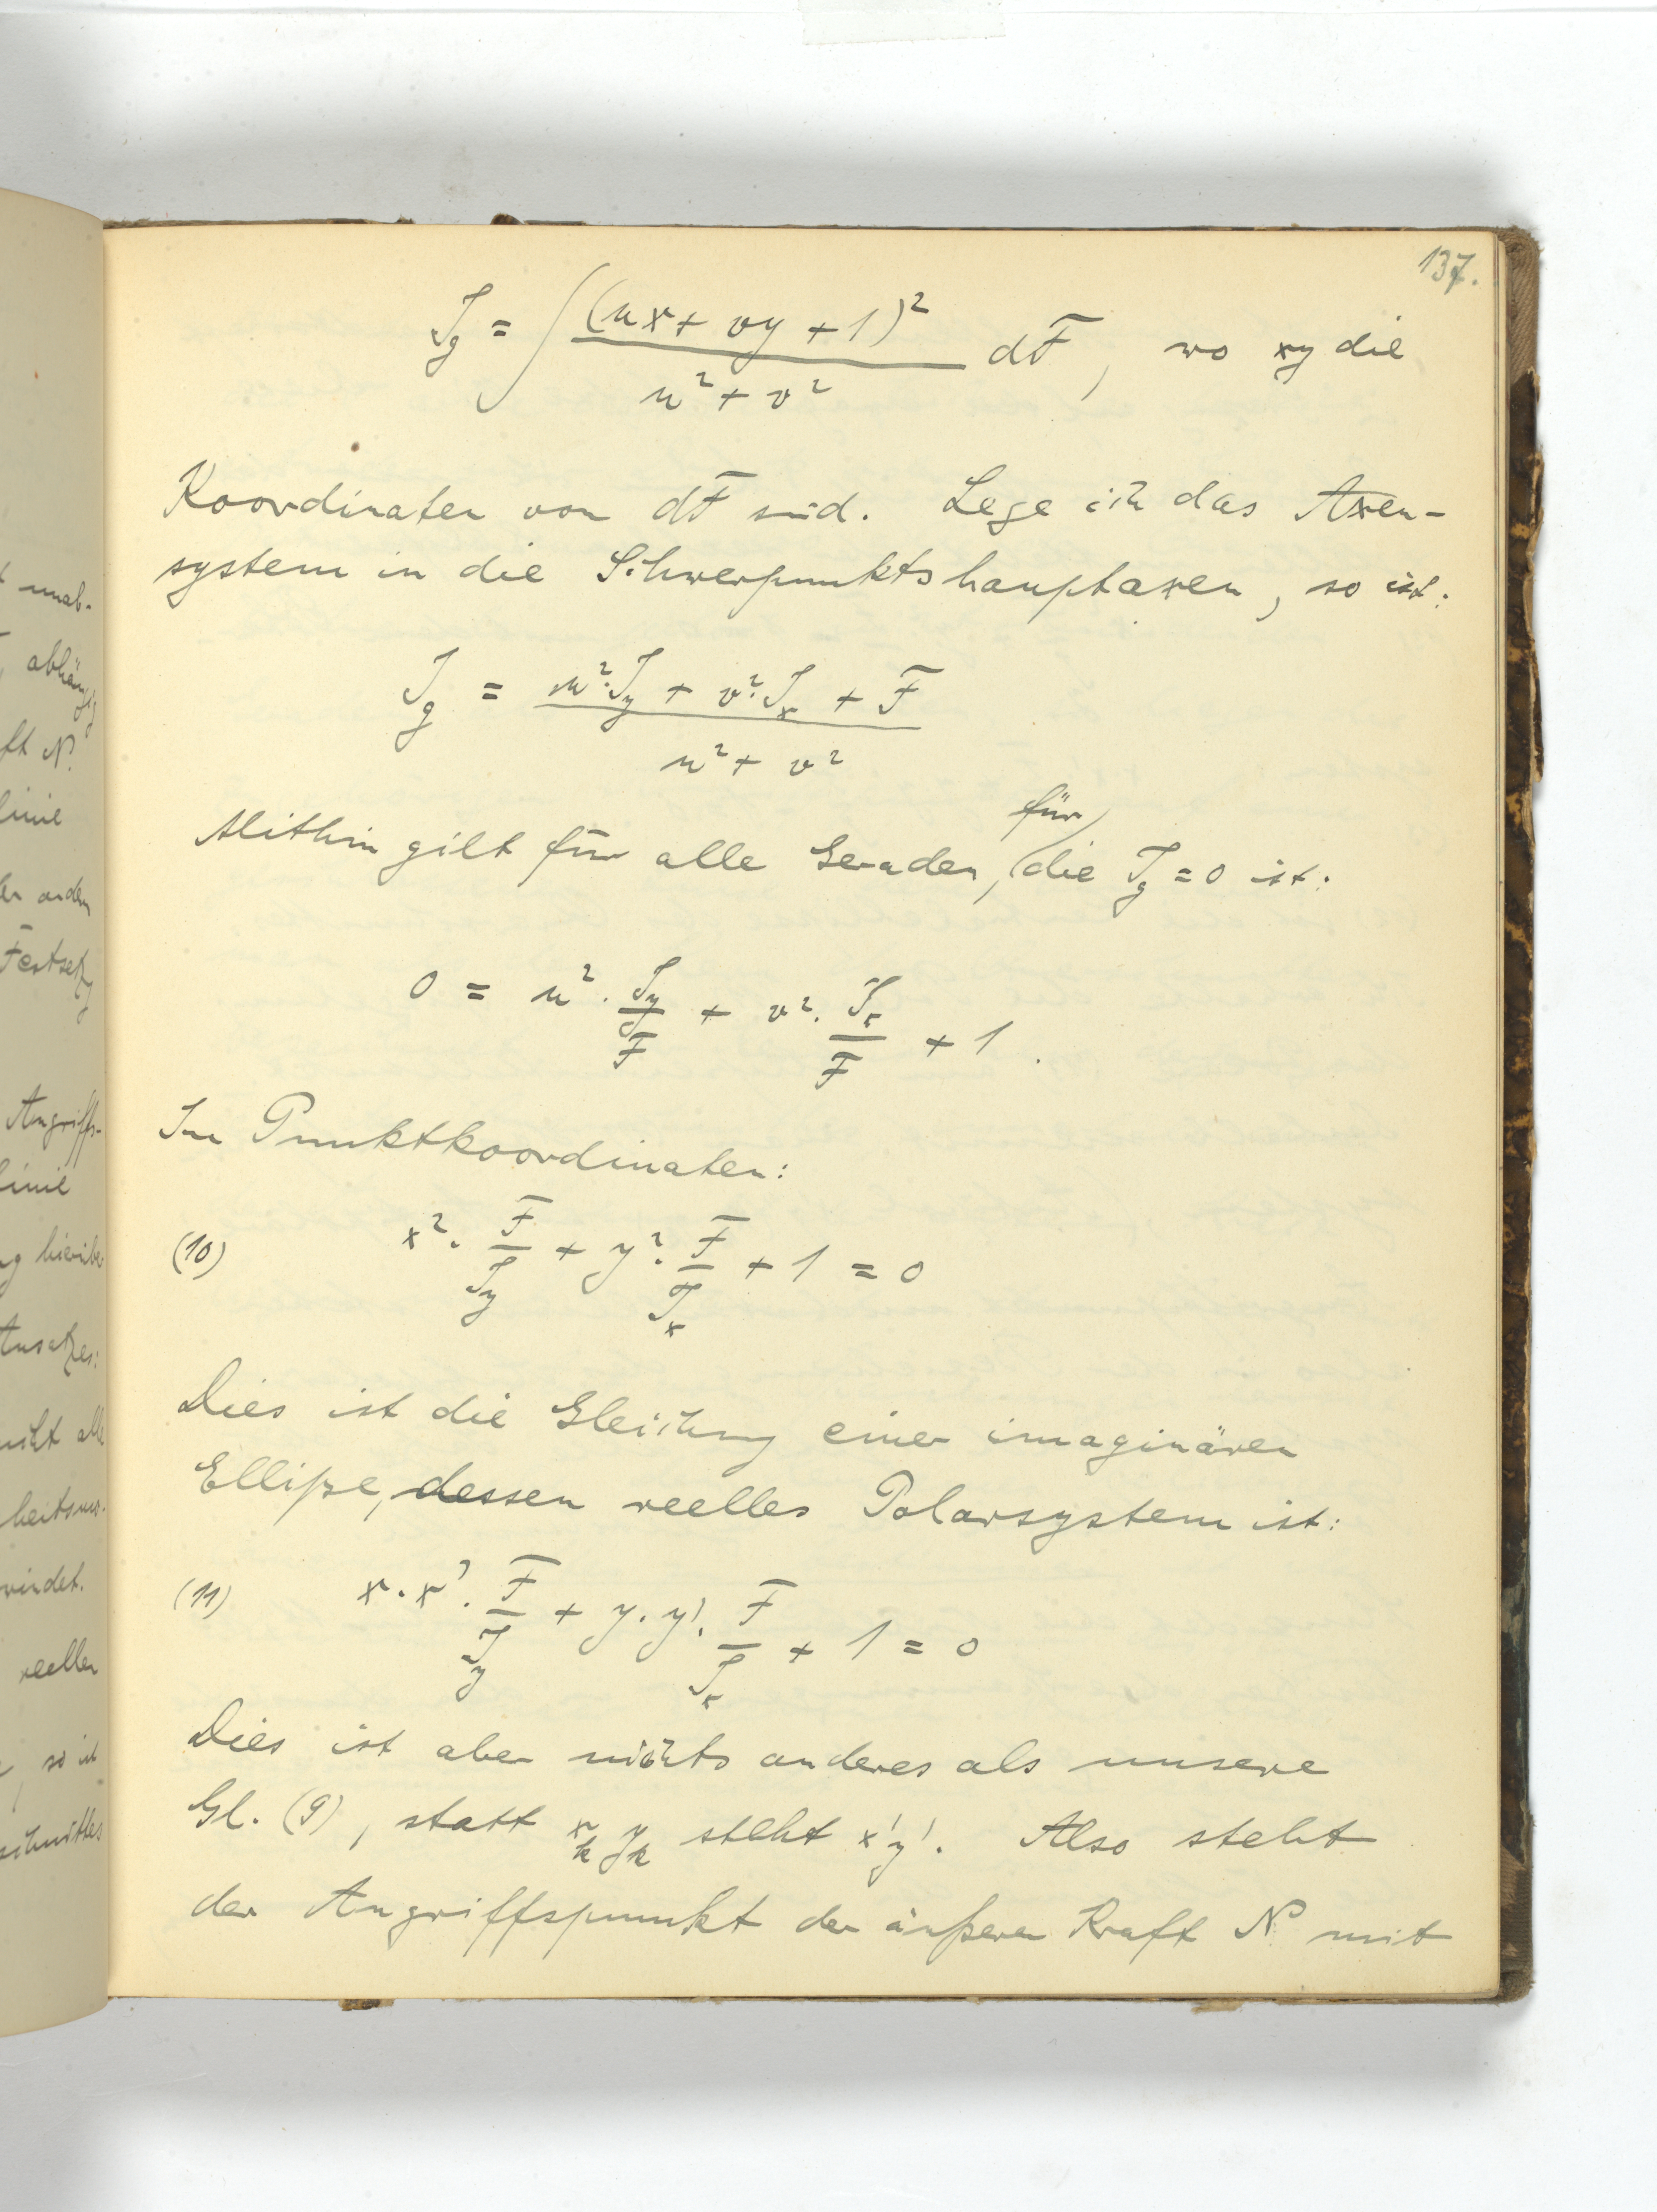 137.
J_g = ∫ (ux + vy + 1)² / (u² + v²) dF, wo xy die
Koordinaten von dF sind. Lege ich das Axen-
system in die Schwerpunktshauptaxen, so ist:
J_g = (u²·J_y + v²·J_x + F) / (u² + v²)
für
Mithin gilt für alle Geraden, die J_g = 0 ist:
0 = u² · J_y/F + v² · J_x/F + 1.
In Punktkoordinaten:
(10) x² · F/J_y + y² · F/J_x + 1 = 0
Dies ist die Gleichung einer imaginären
Ellipse, dessen reelles Polarsystem ist:
(11) x · x' · F/J_y + y · y' · F/J_x + 1 = 0
Dies ist aber nichts anderes als unsere
Gl. (9), statt x_k y_k steht x'y'. Also steht
der Angriffspunkt der äußeren Kraft N mit
unab-
abhängig
ft N.
linie
andern
Festsetzg
Angriffs-
linie
Ansatzes:
windet.
reellen
, so ist
schnittes